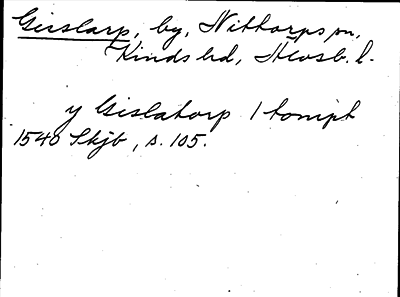 Gisslarp, by, Nittorps sn,
Kinds hd, Älvsb. l.
y Gislatorp 1 tompt
1540 Skjb, s. 105.